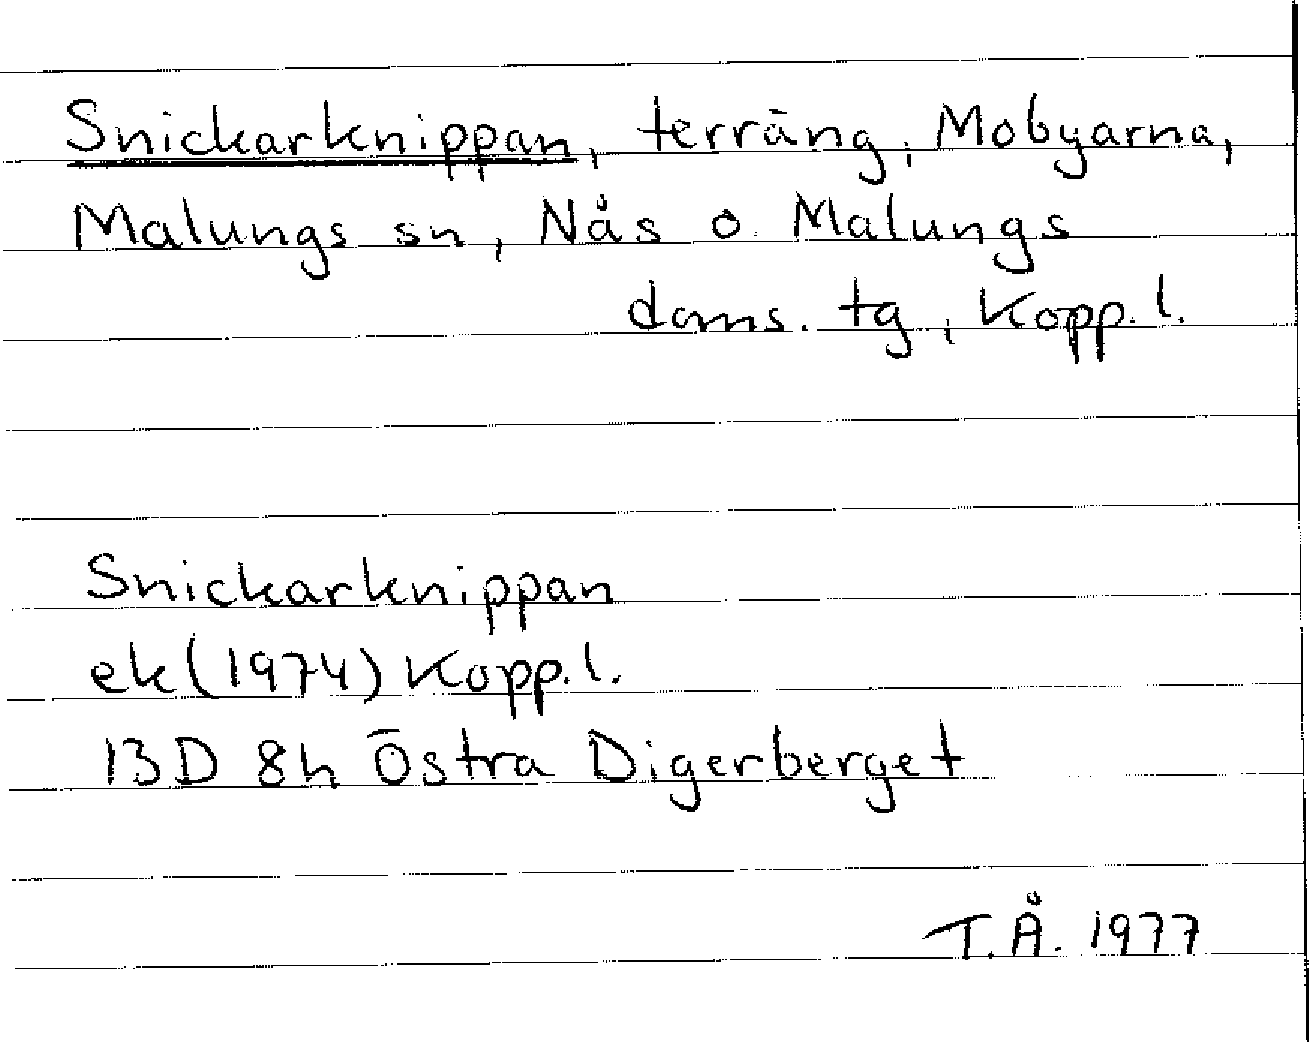 Snickarknippan, terräng, Mobyarna,
Malungs sn, Nås o. Malungs
doms. tg, Kopp. l.
Snickarknippan
ek (1974) Kopp. l.
13D 8h Östra Digerberget
T.Å. 1977